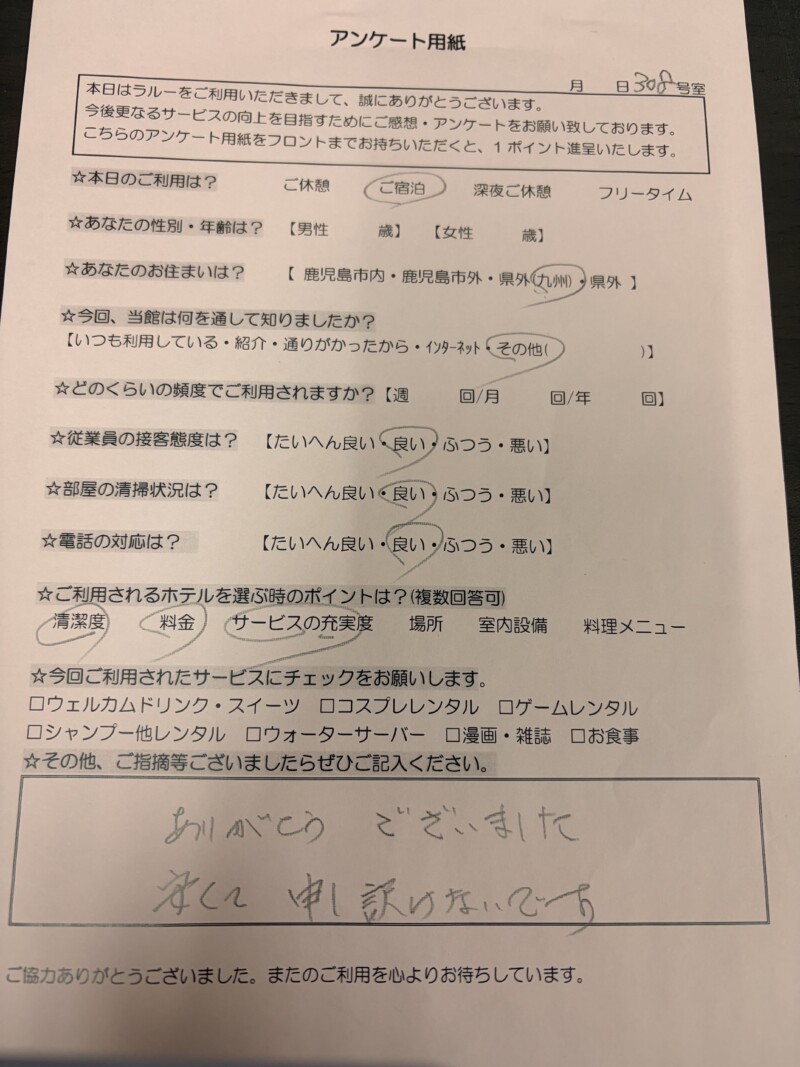 アンケート用紙
月 日308号室
本日はラルーをご利用いただきまして、誠にありがとうございます。
今後更なるサービスの向上を目指すためにご感想・アンケートをお願い致しております。
こちらのアンケート用紙をフロントまでお持ちいただくと、1ポイント進呈いたします。
☆本日のご利用は? ご休憩 ご宿泊 深夜ご休憩 フリータイム
☆あなたの性別・年齢は? 【男性 歳】 【女性 歳】
☆あなたのお住まいは? 【 鹿児島市内・鹿児島市外・県外(九州)・県外 】
☆今回、当館は何を通して知りましたか?
【いつも利用している・紹介・通りがかったから・インターネット・その他( )】
☆どのくらいの頻度でご利用されますか?【週 回/月 回/年 回】
☆従業員の接客態度は? 【たいへん良い・良い・ふつう・悪い】
☆部屋の清掃状況は? 【たいへん良い・良い・ふつう・悪い】
☆電話の対応は? 【たいへん良い・良い・ふつう・悪い】
☆ご利用されるホテルを選ぶ時のポイントは?(複数回答可)
清潔度 料金 サービスの充実度 場所 室内設備 料理メニュー
☆今回ご利用されたサービスにチェックをお願いします。
□ウェルカムドリンク・スイーツ □コスプレレンタル □ゲームレンタル
□シャンプー他レンタル □ウォーターサーバー □漫画・雑誌 □お食事
☆その他、ご指摘等ございましたらぜひご記入ください。
ありがとう ございました
安くて 申し訳けないです
ご協力ありがとうございました。またのご利用を心よりお待ちしています。